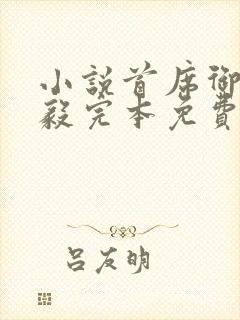 小説首席御
毅完本免費
吕友明